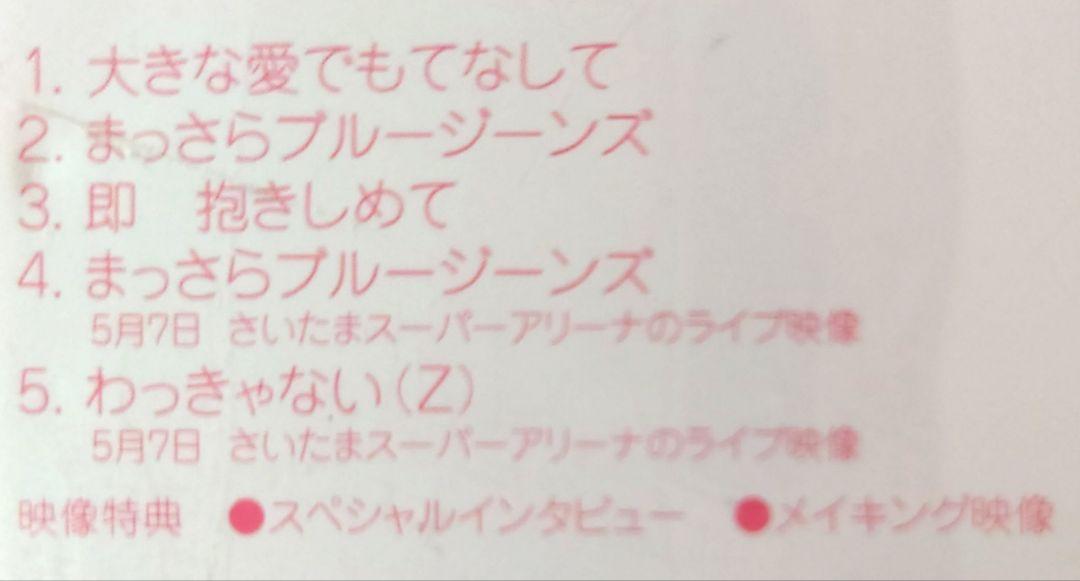 1. 大きな愛でもてなして
2. まっさらブルージーンズ
3. 即　抱きしめて
4. まっさらブルージーンズ
5月7日　さいたまスーパーアリーナのライブ映像
5. わっきゃない(Z)
5月7日　さいたまスーパーアリーナのライブ映像
映像特典　●スペシャルインタビュー　●メイキング映像